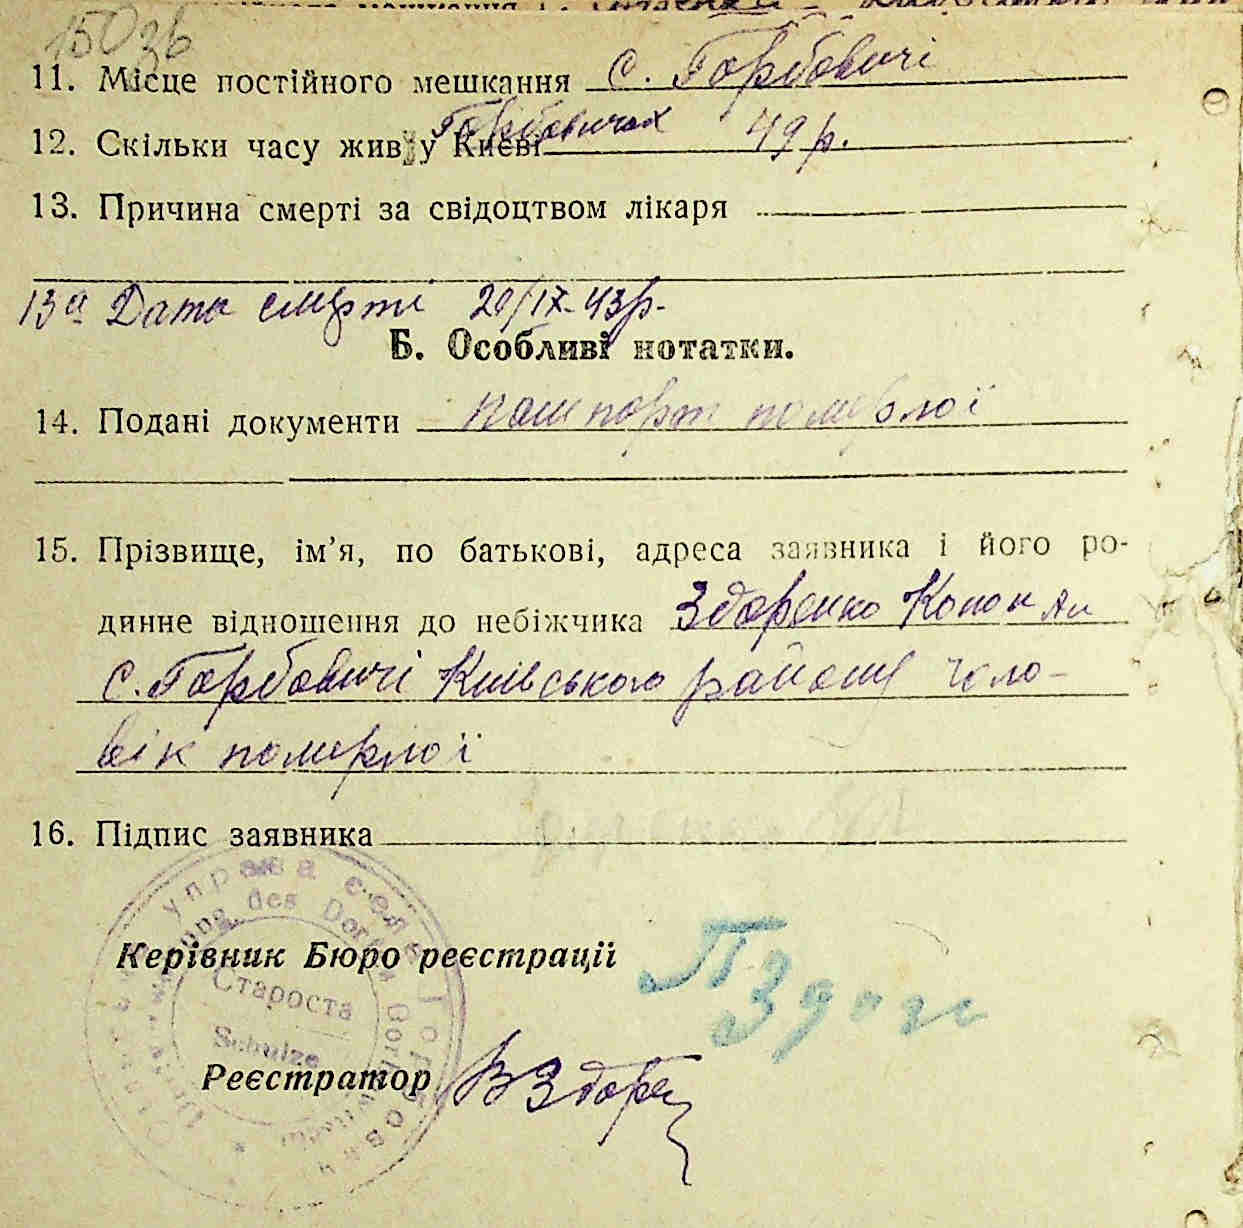 150 зв
11. Місце постійного мешкання с. Горбовичі
12. Скільки часу жив у Києві Горбовичах 49 р.
13. Причина смерті за свідоцтвом лікаря
13а Дата смерті 20/IX-43р.
Б. Особливі нотатки.
14. Подані документи пашпорт померлої
15. Прізвище, ім'я, по батькові, адреса заявника і його ро-
динне відношення до небіжчика Здоренко Конон
с. Горбовичі Київського району чоло-
вік померлої
16. Підпис заявника
управа села Горбович
des Dorfes
Керівник Бюро реєстрації
Староста
Schulze
Реєстратор ВЗдоре